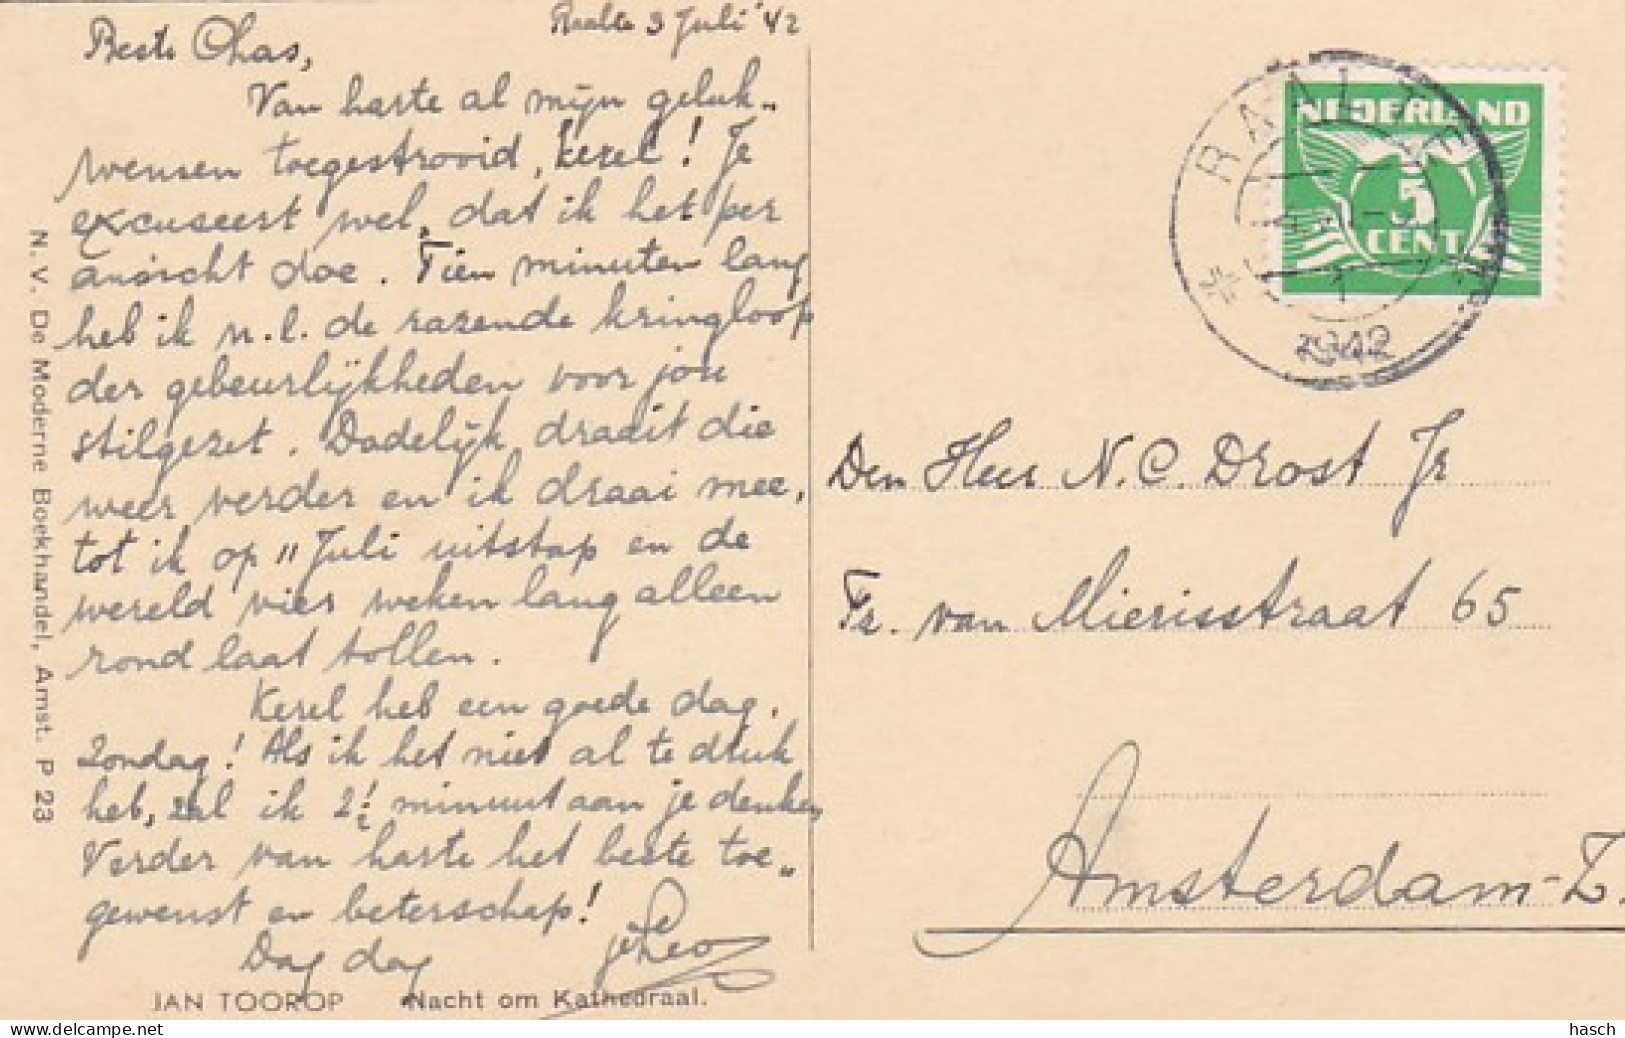 Raalte 3 Juli '42
Beste Chas,
Van harte al mijn geluk„
wensen toegestrooid, kerel! Je
excuseert wel, dat ik het per
ansicht doe. Tien minuten lang
heb ik n.l. de razende kringloop
der gebeurlijkheden voor jou
stilgezet. Dadelijk draait die
weer verder en ik draai mee,
tot ik op 11 Juli uitstap en de
wereld vier weken lang alleen
rond laat tollen.
Kerel heb een goede dag,
Zondag! Als ik het niet al te druk
heb, zal ik 2½ minuut aan je denken
Verder van harte het beste toe„
gewenst en beterschap!
Dag dag
je Leo
JAN TOOROP Nacht om Kathedraal.
N. V. De Moderne Boekhandel, Amst. P 23
RAALTE
1942
NEDERLAND
5
CENT
Den Heer N. C. Drost Jr
Fr. van Mierisstraat 65
Amsterdam-Z.
hasch
delcampe.net